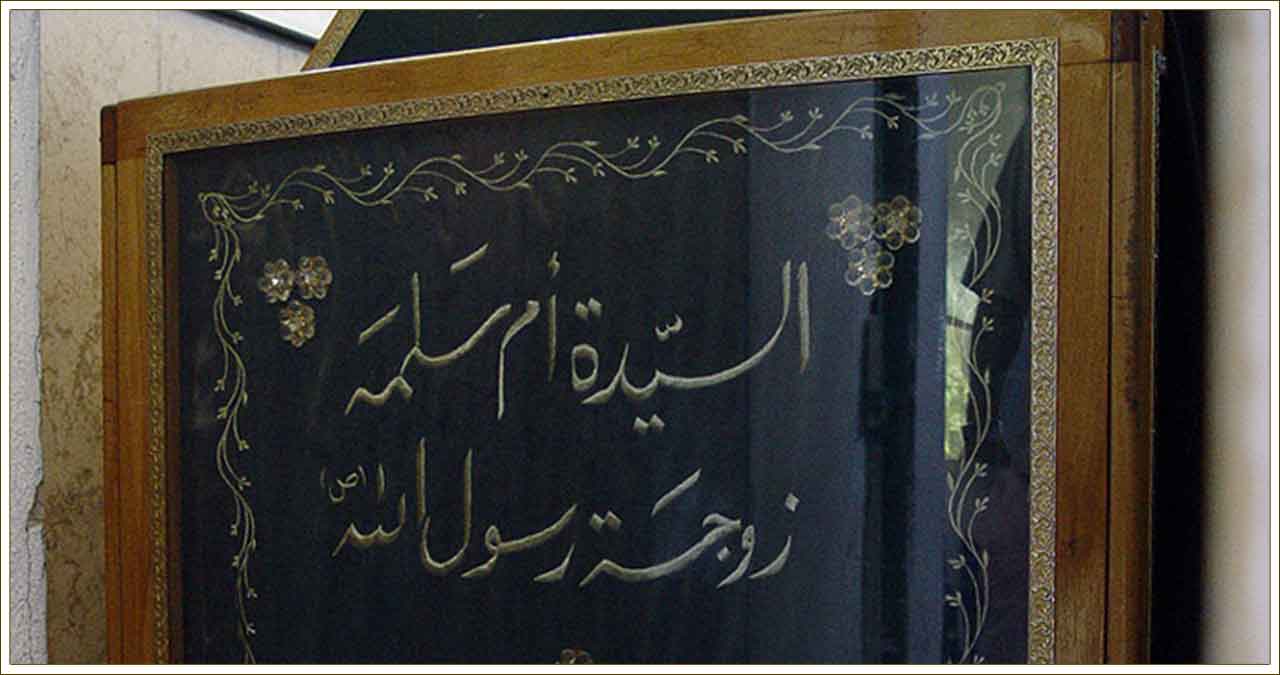 السيّدة أم سلمة
زوجة رسول الله (ص)